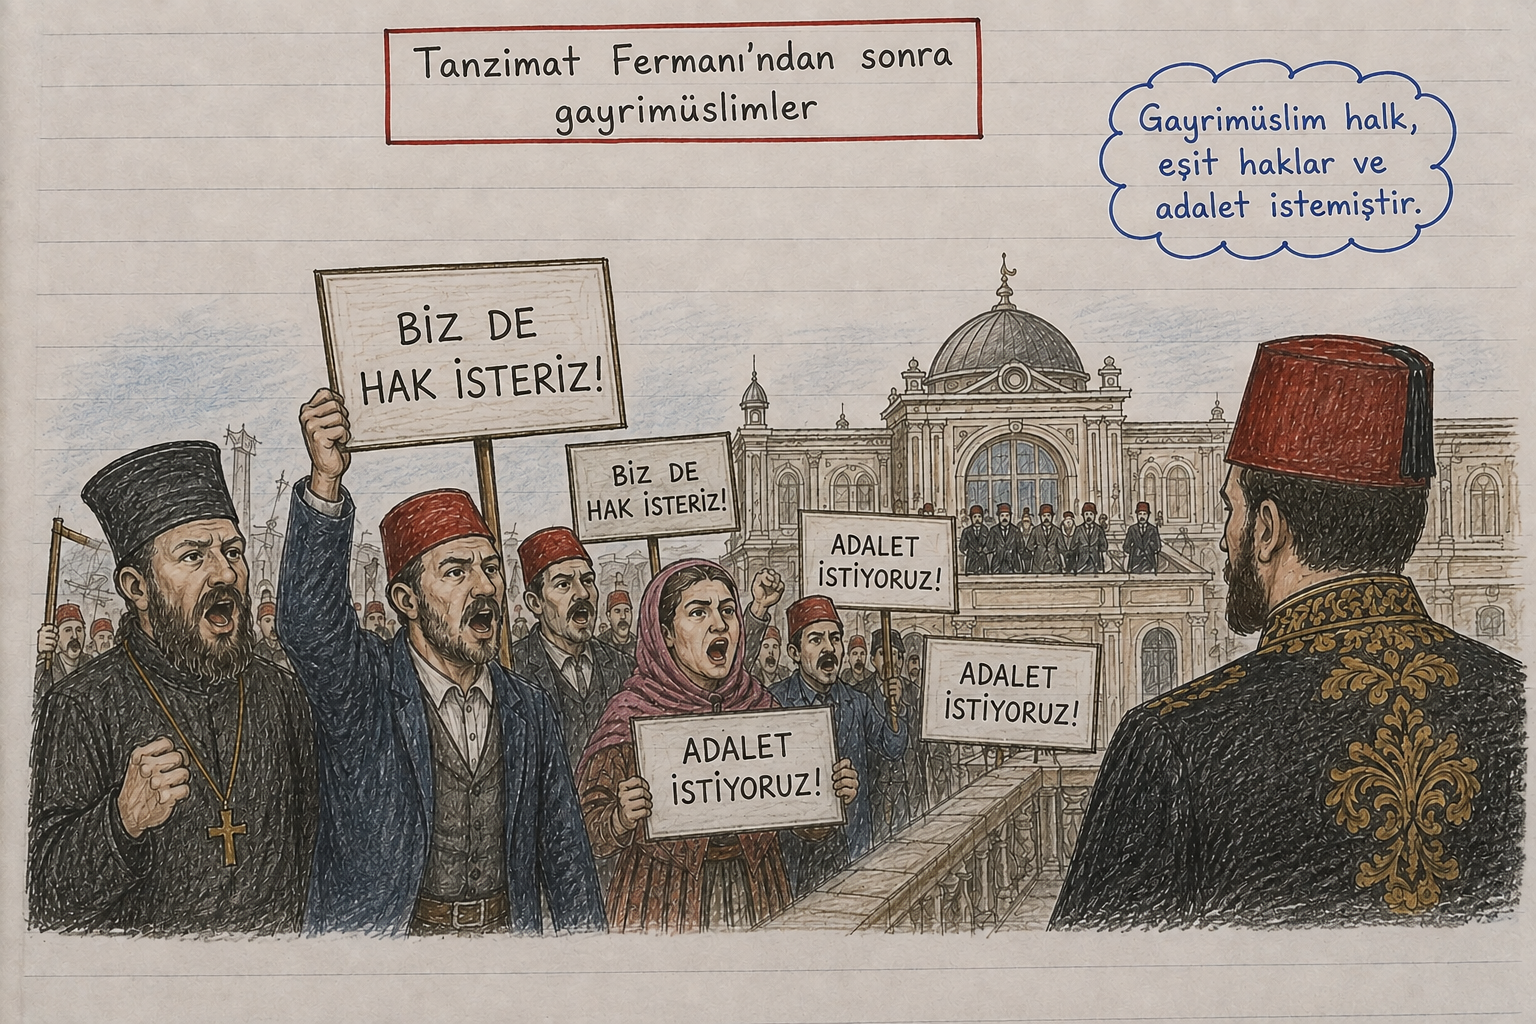 Tanzimat Fermanı'ndan sonra
gayrimüslimler
Gayrimüslim halk,
eşit haklar ve
adalet istemiştir.
BİZ DE
HAK İSTERİZ!
BİZ DE
HAK İSTERİZ!
ADALET
İSTİYORUZ!
ADALET
İSTİYORUZ!
ADALET
İSTİYORUZ!